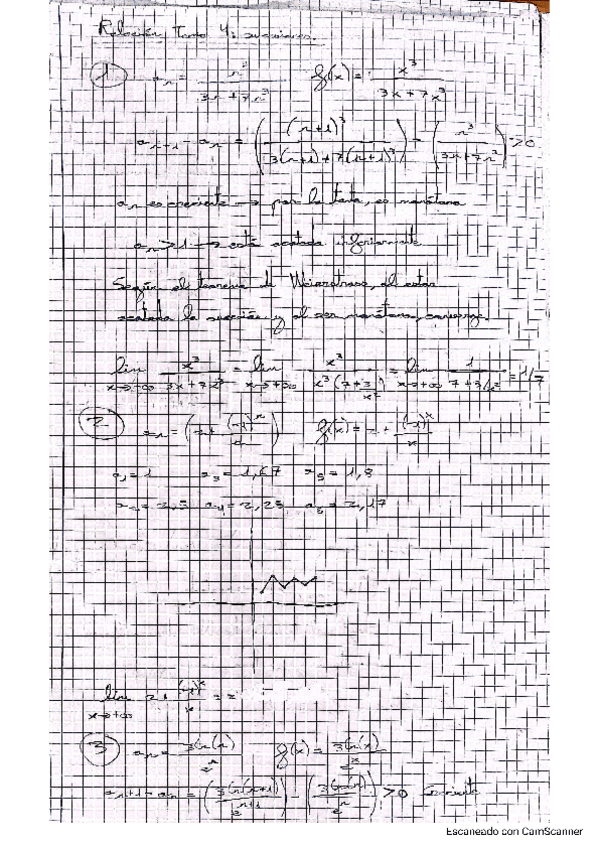 Relación Tema 4: sucesiones.
1 aₙ = n³/(3n+7n³) f(x) = x³/(3x+7x³)
aₙ₊₁ - aₙ = ((n+1)³/(3(n+1)+7(n+1)³)) - (n³/(3n+7n³)) > 0
aₙ es creciente → por lo tanto, es monótona
aₙ > 1 → está acotada inferiormente
Según el teorema de Weierstrass, al estar
acotada la sucesión y al ser monótona, converge.
lim x→+∞ x³/(3x+7x³) = lim x→+∞ x³/(x³(7+3/x²)) = lim x→+∞ 1/(7+3/x²) = 1/7
2 aₙ = (2+(-1)ⁿ/n) f(x) = 2+(-1)ˣ/x
a₁ = 1 a₃ = 1,67 a₅ = 1,8
a₂ = 2,5 a₄ = 2,25 a₆ = 2,17
lim x→+∞ 2+(-1)ˣ/x = 2
3 aₙ = 3ln(n)/eⁿ f(x) = 3ln(x)/eˣ
aₙ₊₁ - aₙ = (3ln(n+1)/eⁿ⁺¹) - (3ln(n)/eⁿ) > 0 Creciente
Escaneado con CamScanner